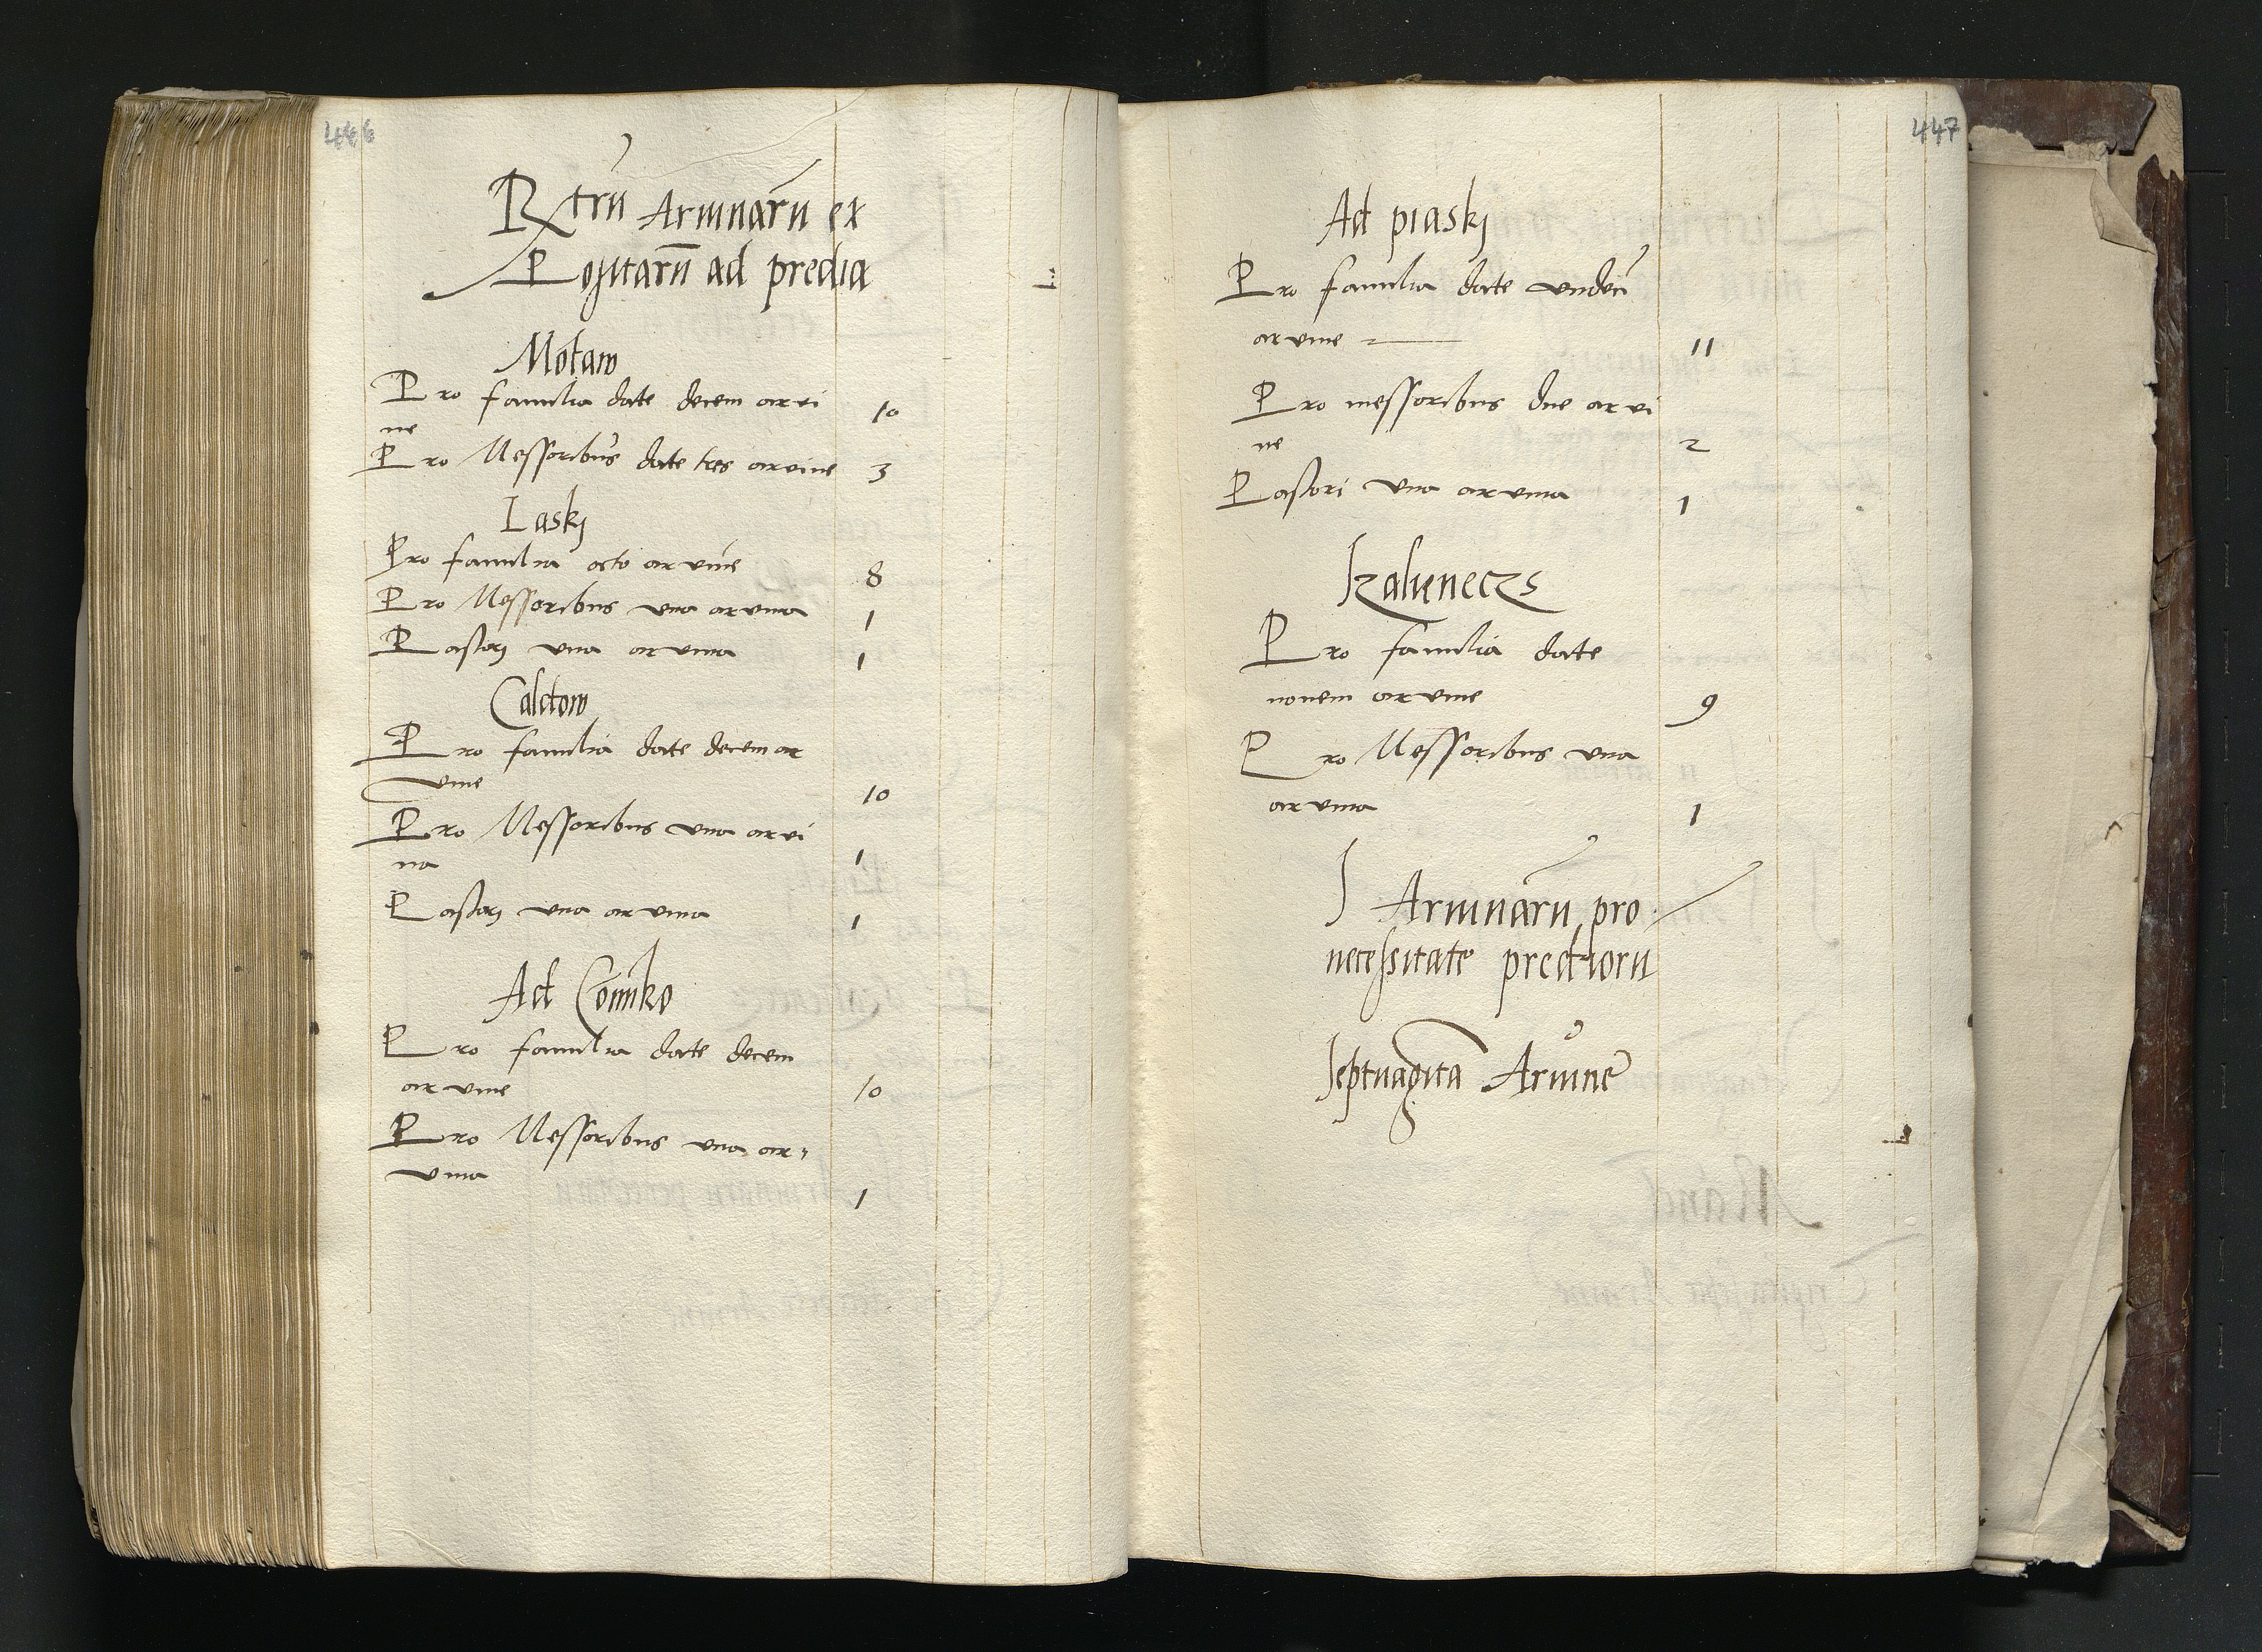 446
Rxtru Arvinaru ex
Positaru ad predia
Motaw
Pro familia date decem arvi
ne 10
Pro Messoribus date tres arvine 3
Laskj
Pro familia octo arvine 8
Pro Messoribus una arvina 1
Pastorj una arvina 1
Caldow
Pro familia date decem ar
vine 10
Pro Messoribus una arvi
na 1
Pastorj una arvina 1
Ad Comko
Pro familia date decem
arvine 10
Pro Messoribus una ar
vina 1
447
Ad piaskj
Pro familia date undeci
arvine 11
Pro messoribus due arvi
ne 2
Pastori una arvina 1
Kalyeneczs
Pro familia date
novem arvine 9
Pro Messoribus una
arvina 1
S Arvinaru pro
necessitate prediorũ
Septuagīta Arvine